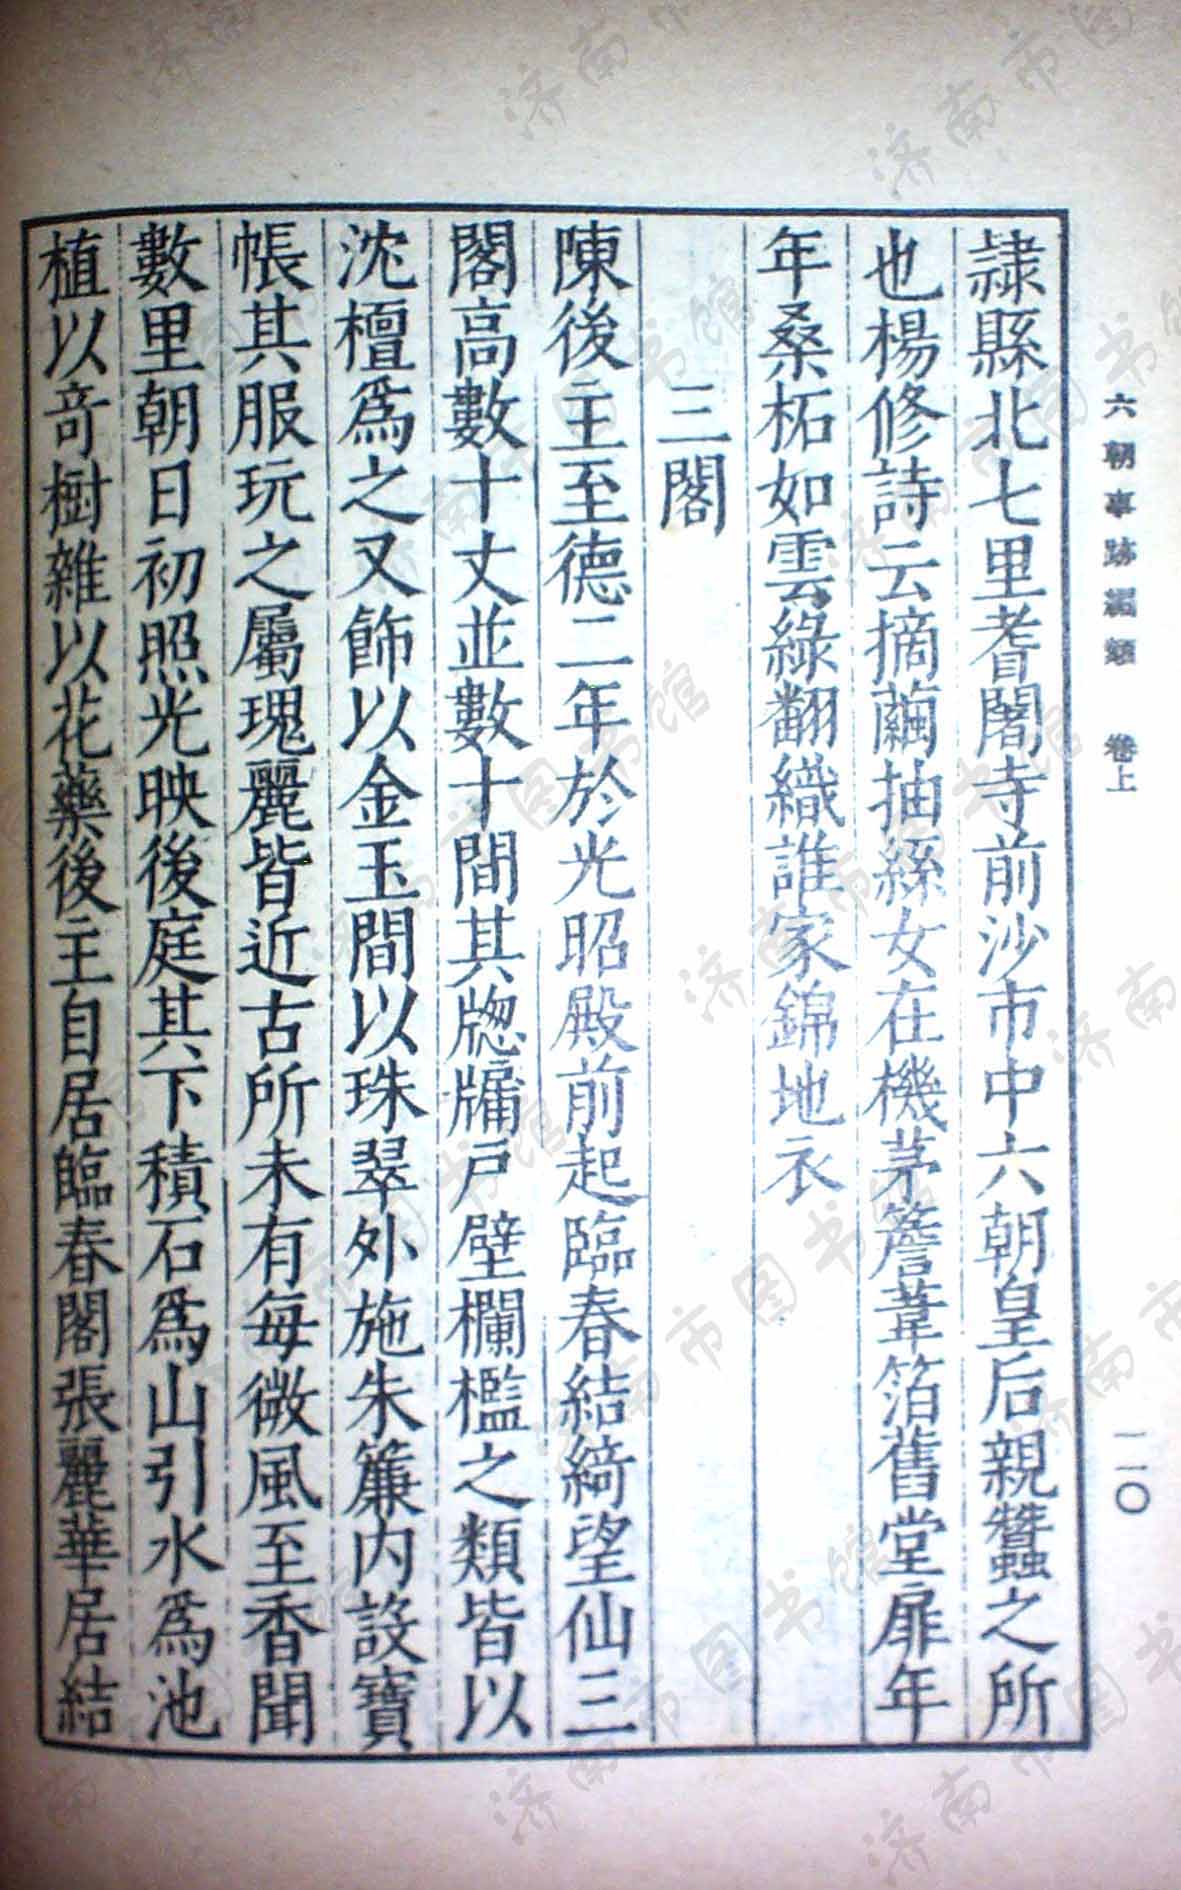 六朝事跡編類 卷上
一一〇
隷縣北七里耆闍寺前沙市中六朝皇后親蠶之所
也楊修詩云摘繭抽絲女在機茅簷葦箔舊堂扉年
年桑柘如雲綠翻織誰家錦地衣
三閣
陳後主至德二年於光昭殿前起臨春結綺望仙三
閣高數十丈並數十間其牎牖戸壁欄檻之類皆以
沈檀爲之又飾以金玉間以珠翠外施朱簾内設寶
帳其服玩之屬瑰麗皆近古所未有每微風至香聞
數里朝日初照光映後庭其下積石爲山引水爲池
植以竒樹雜以花藥後主自居臨春閣張麗華居結
济南市图书馆